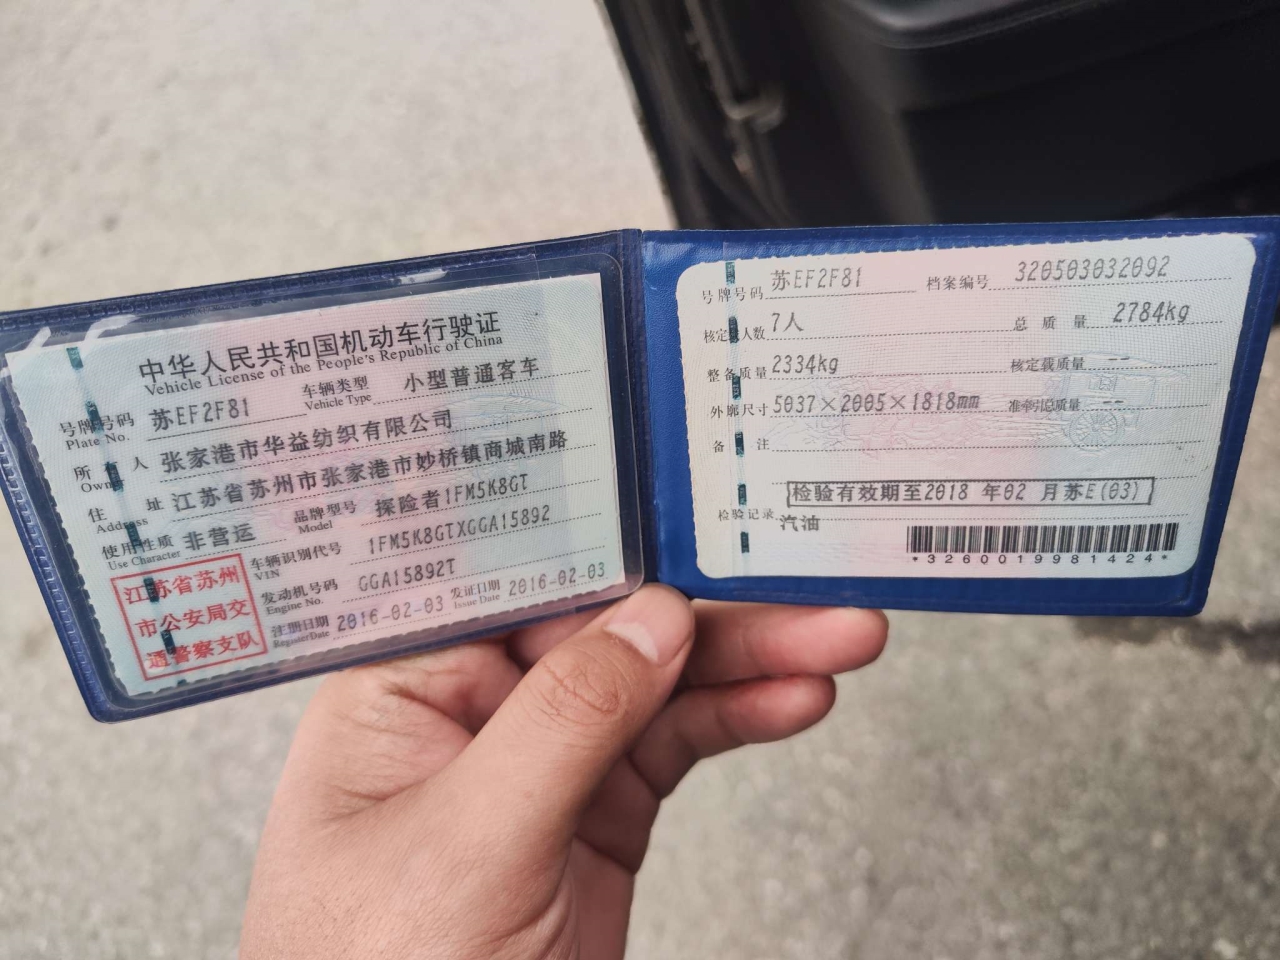 中华人民共和国机动车行驶证
Vehicle License of the People's Republic of China
号牌号码 苏EF2F81 车辆类型 小型普通客车
Plate No. Vehicle Type
所有人 张家港市华益纺织有限公司
Owner
住址 江苏省苏州市张家港市妙桥镇商城南路
Address
使用性质 非营运 品牌型号 探险者1FM5K8GT
Use Character Model
江苏省苏州
市公安局交
通警察支队
车辆识别代号 1FM5K8GTXGGA15892
VIN
发动机号码 GGA15892T
Engine No.
注册日期 2016-02-03 发证日期 2016-02-03
RegisterDate Issue Date
号牌号码 苏EF2F81 档案编号 320503032092
核定载人数 7人 总质量 2784kg
整备质量 2334kg 核定载质量 --
外廓尺寸 5037×2005×1818mm 准牵引总质量 --
备注
检验有效期至2018 年02 月苏E(03)
检验记录 汽油
*3260019981424*